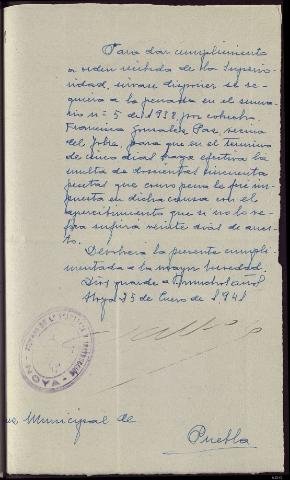 Para dar cumplimiento
a orden recibida de la Superio-
ridad, sirvase disponer se re-
quiera a la penada en el suma-
rio nº 5 de 1.938, por cohecho,
Francisca Gonzalez Paz, vecina
del, para que en el termino
de cinco dias haga efectiva la
multa de doscientas cincuenta
pesetas que como pena le fue im-
puesta en dicha causa con el
apercibimiento que si no lo ve-
fica sufrira veinte dias de arres-
to.
Devolvera la presente cumpli-
mentada a la mayor brevedad.
Dios guarde a V. muchos años
25 de Enero de 1941
Municipal de
Puebla